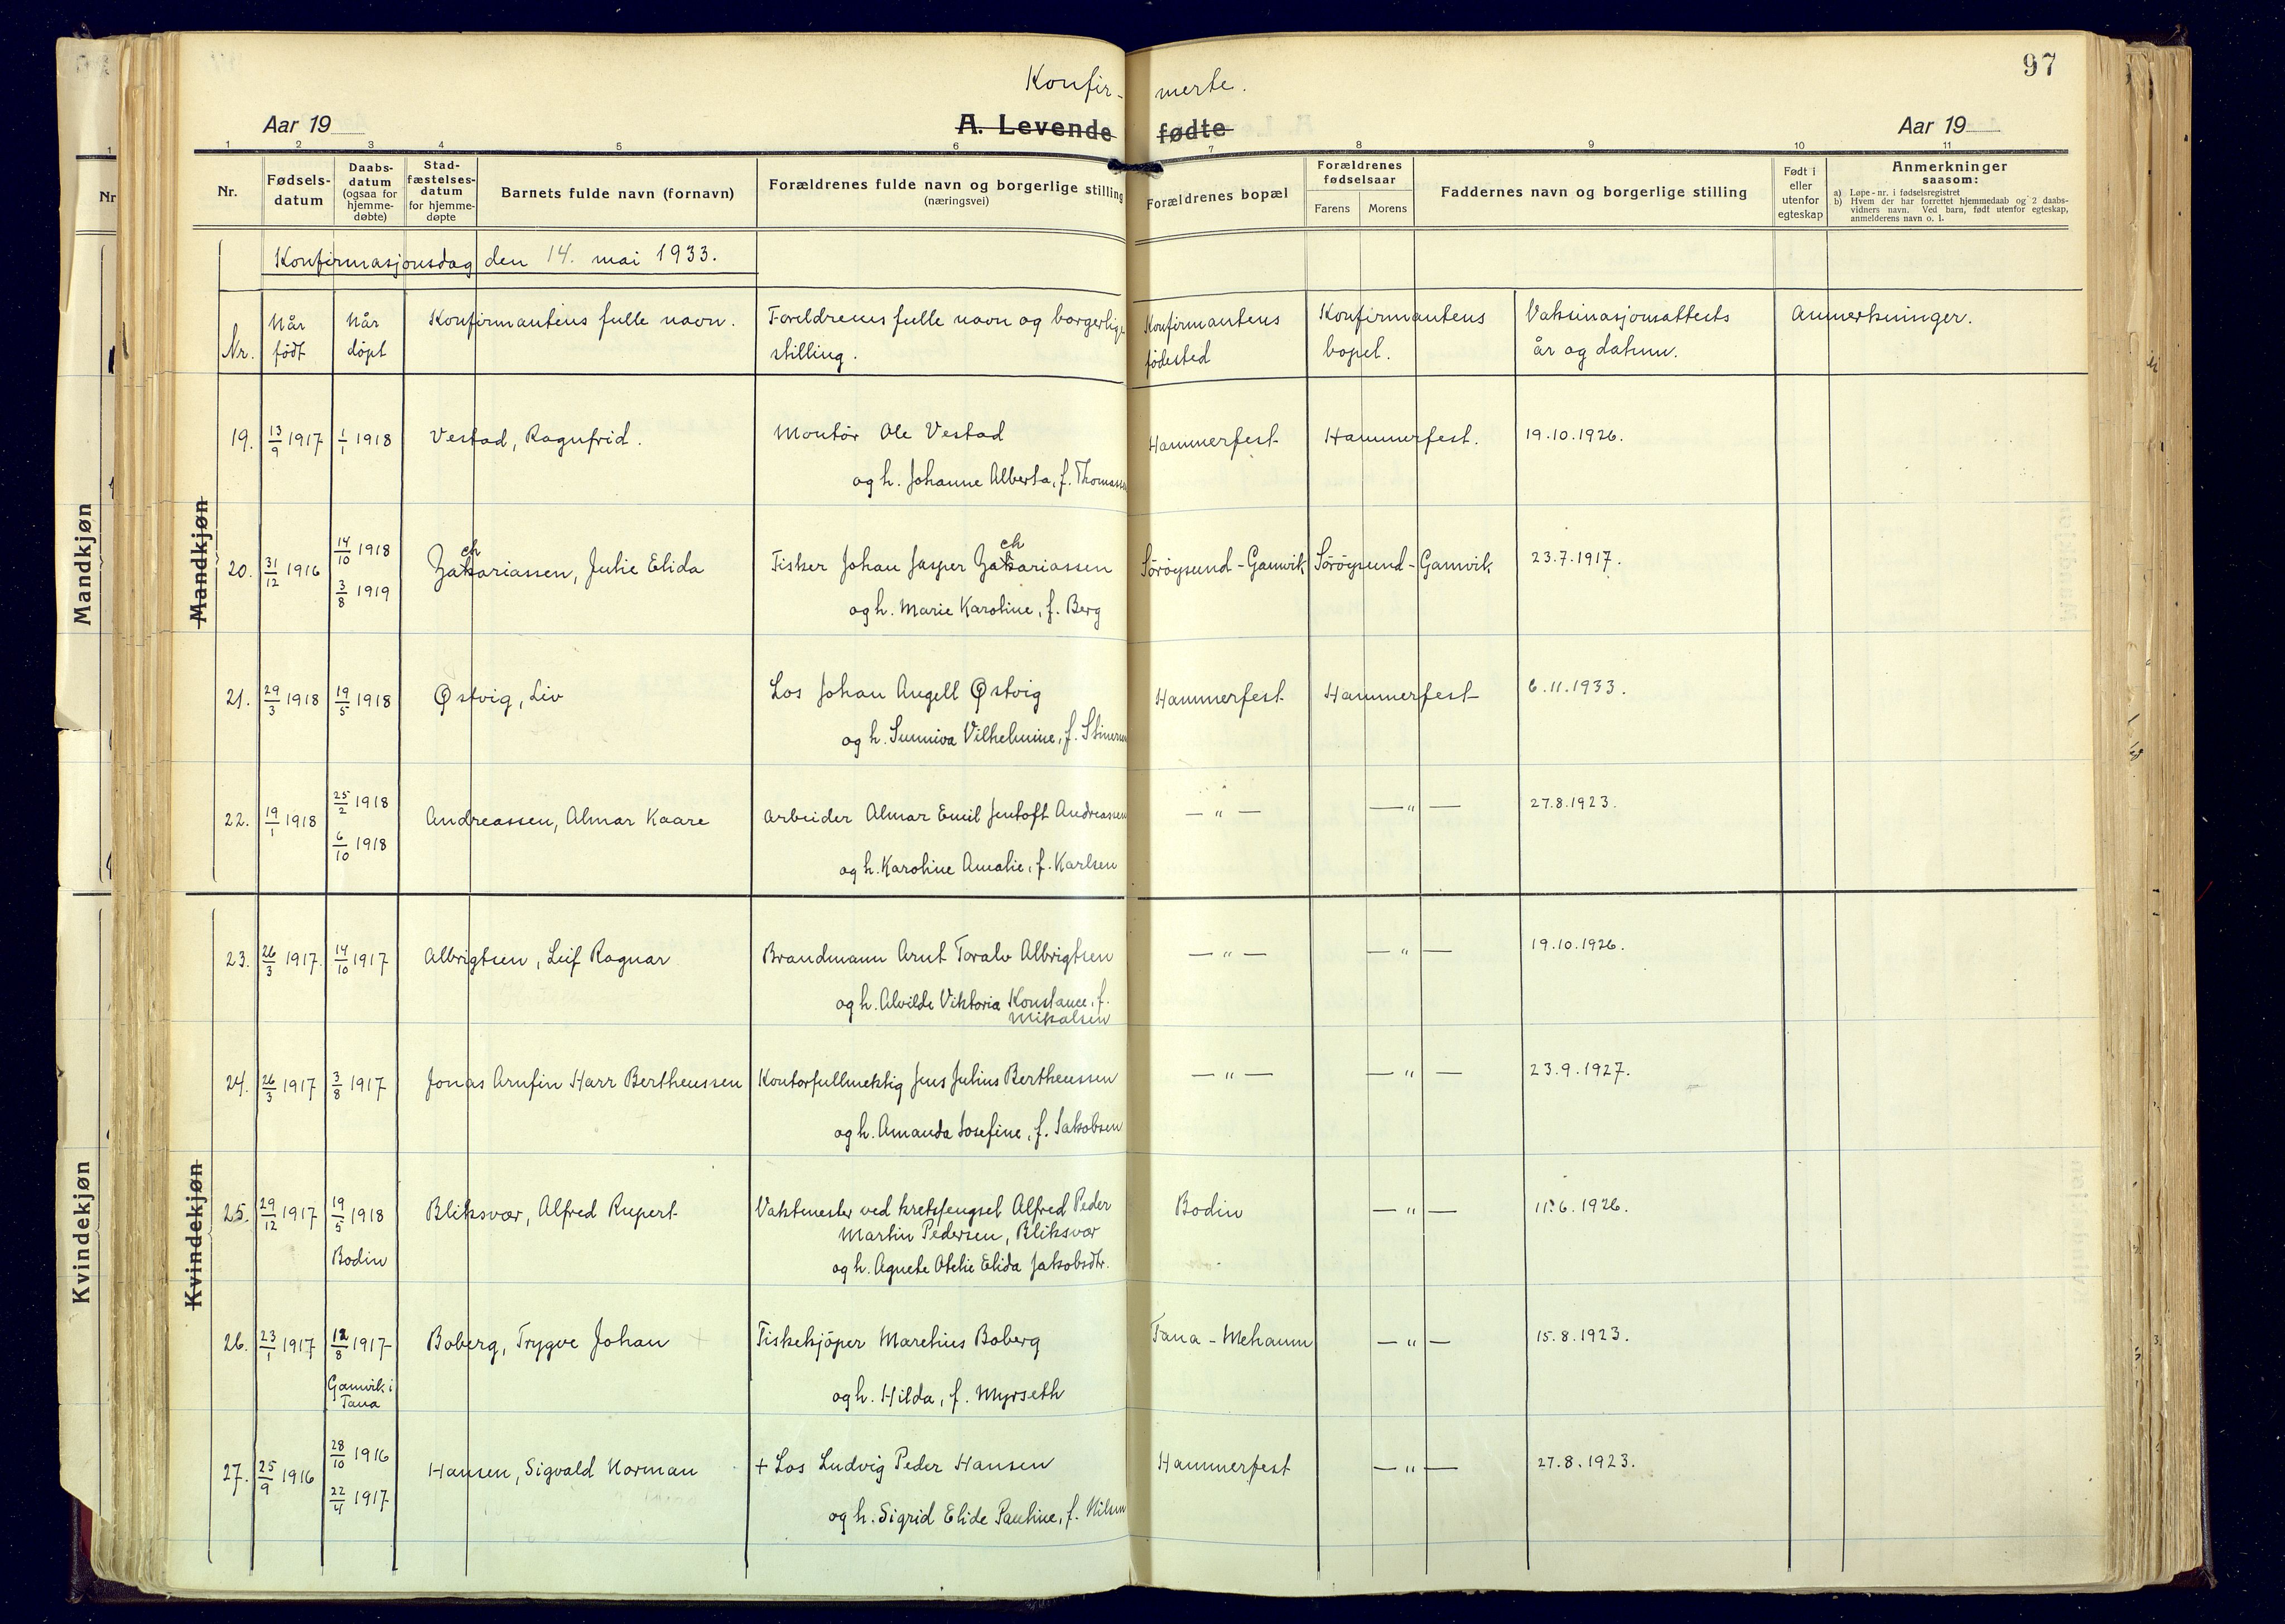 97
Konfir- merte.
Aar 19 A. Levende fødte Aar 19
1 2 3 4 5 6 7 8 9 10 11
Nr. Fødselsdatum Daabsdatum (ogsaa for hjemmedøbte) Stadfæstelsesdatum for hjemmedøpte Barnets fulde navn (fornavn) Forældrenes fulde navn og borgerlige stilling (næringsvei) Forældrenes bopæl Forældrenes fødselsaar Farens Morens Faddernes navn og borgerlige stilling Født i eller utenfor egteskap Anmerkninger saasom: a) Løpe-nr. i fødselsregistret b) Hvem der har forrettet hjemmedaab og 2 daabsvidners navn. Ved barn, født utenfor egteskap, anmelderens navn o. l.
Konfirmasjonsdag den 14. mai 1933.
Nr. Når født Når döpt Konfirmantens fulle navn. Foreldrenes fulle navn og borgerlige stilling. Konfirmantens födested Konfirmantens bopel. Vaksinasjonsattests år og datum. Anmerkninger.
Mandkjøn
Mandkjøn
19. 13/9 1917 1/1 1918 Vestad, Ragnfrid. Montör Ole Vestad Hammerfest Hammerfest. 19.10.1926.
og h. Johanne Alberta, f. Thomassen
20. 31/12 1916 14/10 1918 Zakariassen, Julie Elida Fisker Johan Jasper Zakariassen Söröysund-Gamvik Söröysund-Gamvik 23.7.1917.
ch ch
3/8 1919 og h. Marie Karoline, f. Berg
21. 29/3 1918 19/5 1918 Østvig, Liv Los Johan Angell Østvig Hammerfest Hammerfest 6.11.1933.
og h. Sunniva Vilhelmine, f.
22. 19/1 1918 25/2 1918 Andreassen, Almar Kaare Arbeider Almar Emil Jentoft Andreassen — " — — " — 27.8.1923.
6/10 1918 og h. Karoline Amalie, f. Karlsen
Kvindekjøn
Kvindekjøn
23. 26/3 1917. 14/10 1917 Albrigtsen, Leif Ragnar Brandmann Arnt Toralv Albrigtsen — " — — " — 19.10.1926.
og h. Alvilde Viktoria Konstance, f.
Mikalsen
24. 26/3 1917 3/8 1917 Jonas Arnfin Harr Bertheussen Kontorfullmektig Jens Julius Bertheussen — " — — " — 23.9.1927.
og h. Amanda Josefine, f. Jakobsen
25. 29/12 1917 19/5 1918 Bliksvær, Alfred Rupert Vaktmester ved kretsfengsel Alfred Peder Bodin — " — 11.6.1926.
Martin Pedersen, Bliksvær
Bodin og h. Agnete Otelie Elida Jakobsdtr.
26. 23/1 1917 12/8 1917 Boberg, Trygve Johan Fiskekjöper Marelius Boberg Tana-Mehamn — " — 15.8.1923.
Gamvik i
Tana og h. Hilda, f. Myrseth
27. 25/9 1916 28/10 1916 Hansen, Sigvald Norman + Los Ludvig Peder Hansen Hammerfest — " — 27.8.1923.
22/4 1917 og h. Sigrid Elide Pauline, f. Nilsen